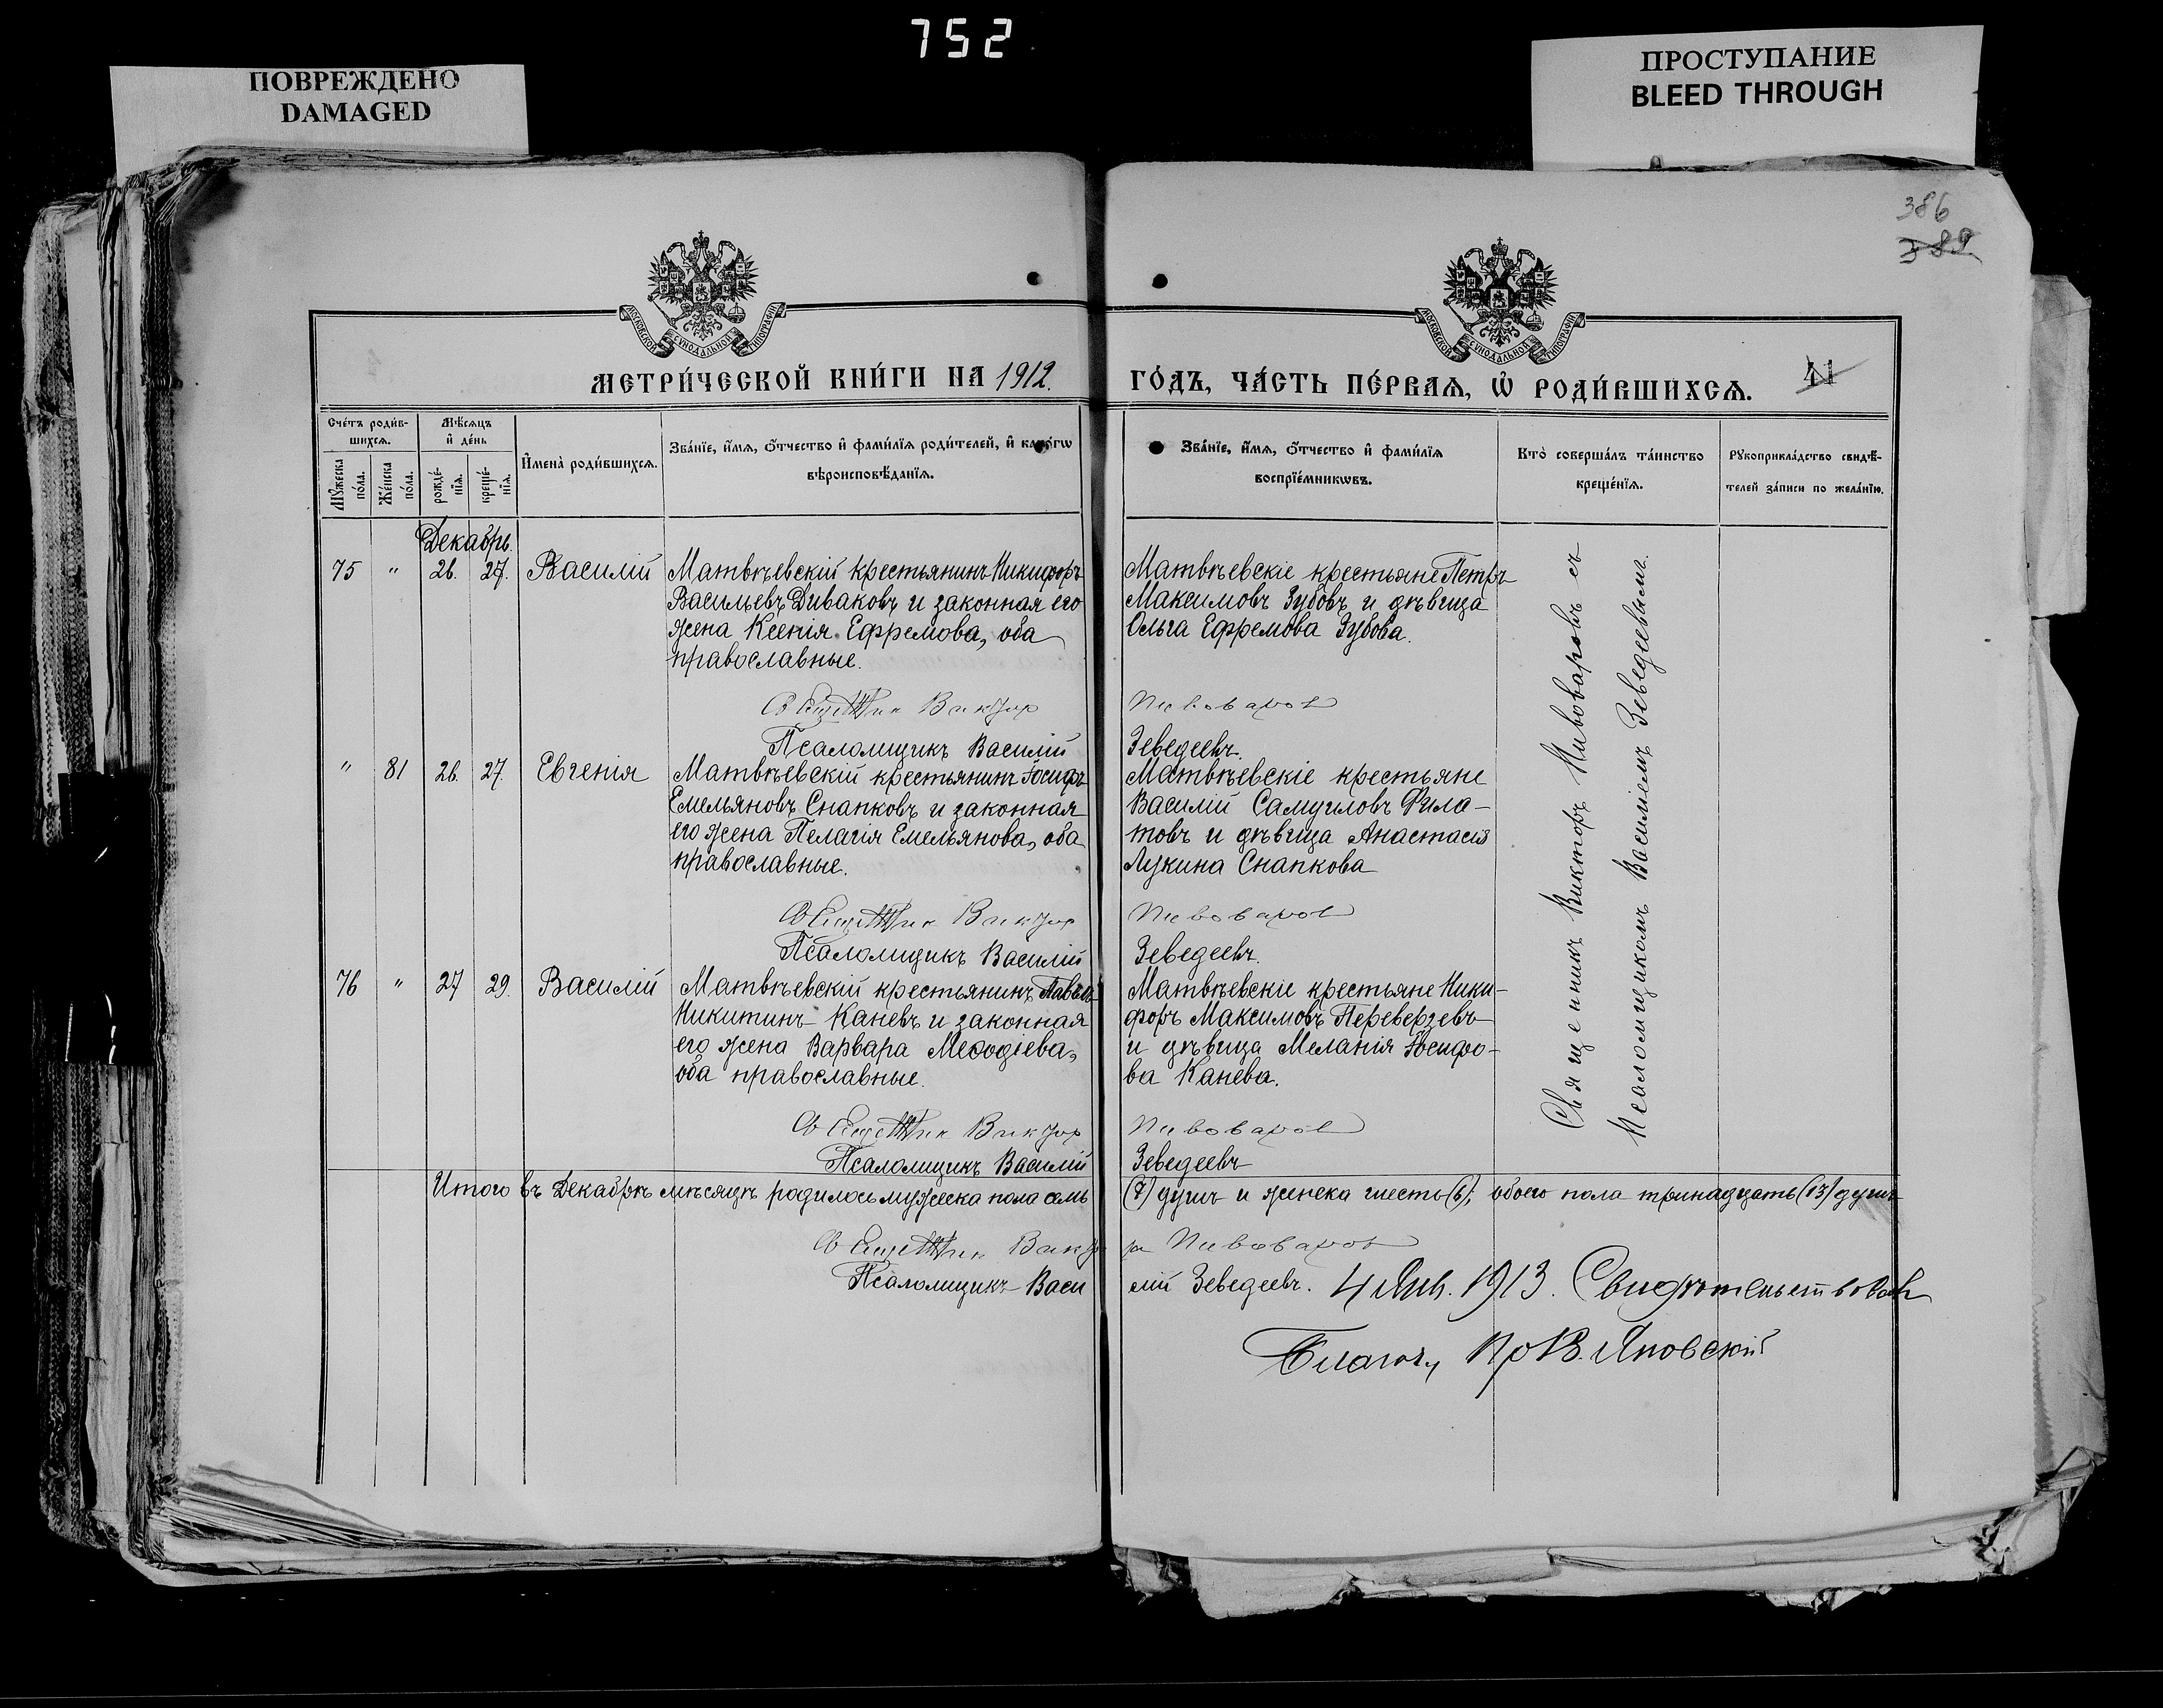 752
ПОВРЕЖДЕНО
DAMAGED
ПРОСТУПАНИЕ
BLEED THROUGH
386
389
МОСКОВСКОЙ СѴНОДАЛЬНОЙ ТИПОГРАФІИ
МОСКОВСКОЙ СѴНОДАЛЬНОЙ ТИПОГРАФІИ
МЕТРИ́ЧЕСКОЙ КНИ́ГИ НА 1912.
ГО́ДЪ, ЧА́СТЬ ПЕ́РВАѦ, Ѽ РОДИ́ВШИХСѦ.
41
Сче́тъ роди́в-
шихсѧ.
Мꙋжеска
по́ла.
Же́нска
по́ла.
Мѣ́сѧцъ
и҆ де́нь
рожде́-
нїѧ.
креще́-
нїѧ.
И҆мена̀ роди́вшихсѧ.
Зва́нїе, и҆́мѧ, ѻ҆́тчество и҆ фами́лїѧ роди́телей, и҆ како́гѡ
вѣроисповѣ́данїѧ.
Зва́нїе, и҆́мѧ, ѻ҆́тчество и҆ фами́лїѧ
воспрїе́мникѡвъ.
Кто̀ соверша́лъ та́инство
креще́нїѧ.
Рꙋкоприкла́дство свидѣ́-
телей за́писи по жела́нїю.
Декабрь.
75 " 26. 27. Василій
Матвѣевскій крестьянинъ Никифоръ
Васильевъ Диваковъ и законная его
жена Ксенія Ефремова, оба
православные.
Матвѣевскіе крестьяне Петръ
Максимовъ Зубовъ и дѣвица
Ольга Ефремова Зубова.
Священник Виктор Пивоваров
Псаломщикъ Василій Зеведеевъ.
" 81 26. 27. Евгенія
Матвѣевскій крестьянинъ Іосифъ
Емельяновъ Снапковъ и законная
его жена Пелагія Емельянова, оба
православные.
Матвѣевскіе крестьяне
Василій Самуиловъ Фила-
товъ и дѣвица Анастасія
Лукина Снапкова
Священник Виктор Пивоваров
Псаломщикъ Василій Зеведеевъ.
76 " 27 29. Василій
Матвѣевскій крестьянинъ Павелъ
Никитинъ Каневъ и законная
его жена Варвара Меѳодіева,
оба православные.
Матвѣевскіе крестьяне Ники-
форъ Максимовъ Переверзевъ
и дѣвица Меланія Іосифо-
ва Канева.
Священник Виктор Пивоваров
Псаломщикъ Василій Зеведеевъ
Священникъ Викторъ Пивоваровъ съ
Псаломщикомъ Василіемъ Зеведеевымъ.
Итого въ Декабрѣ мѣсяцѣ родилось мужеска пола семь (7) душъ и женска шесть (6); обоего пола тринадцать (13) душъ
Священник Виктор Пивоваров
Псаломщикъ Василій Зеведеевъ.
4 Янв. 1913. Свидѣтельствовалъ
Благоч. Пр. В. Яновскій